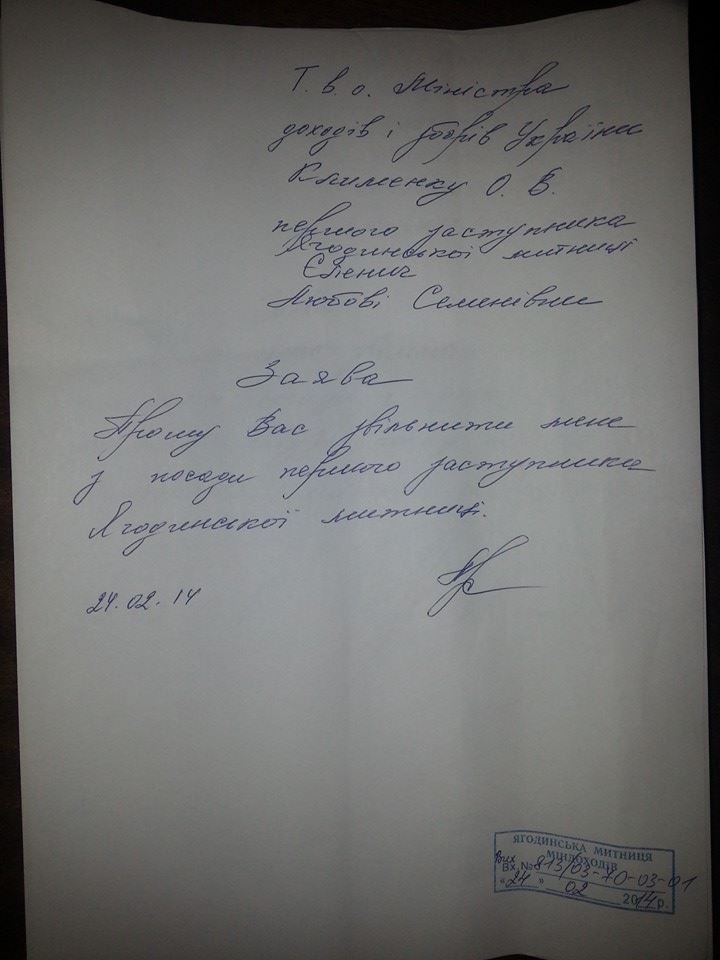 Т. в. о. Міністра
доходів і зборів України
Клименку О. В.
першого заступника
Ягодинської митниці
Єленич
Любові Семенівни
Заява
Прошу Вас звільнити мене
з посади першого заступника
Ягодинської митниці.
24.02.14
ЯГОДИНСЬКА МИТНИЦЯ
МІНДОХОДІВ
Вих
Вх.№ 813/03-70-03-01
"24" 02 2014р.